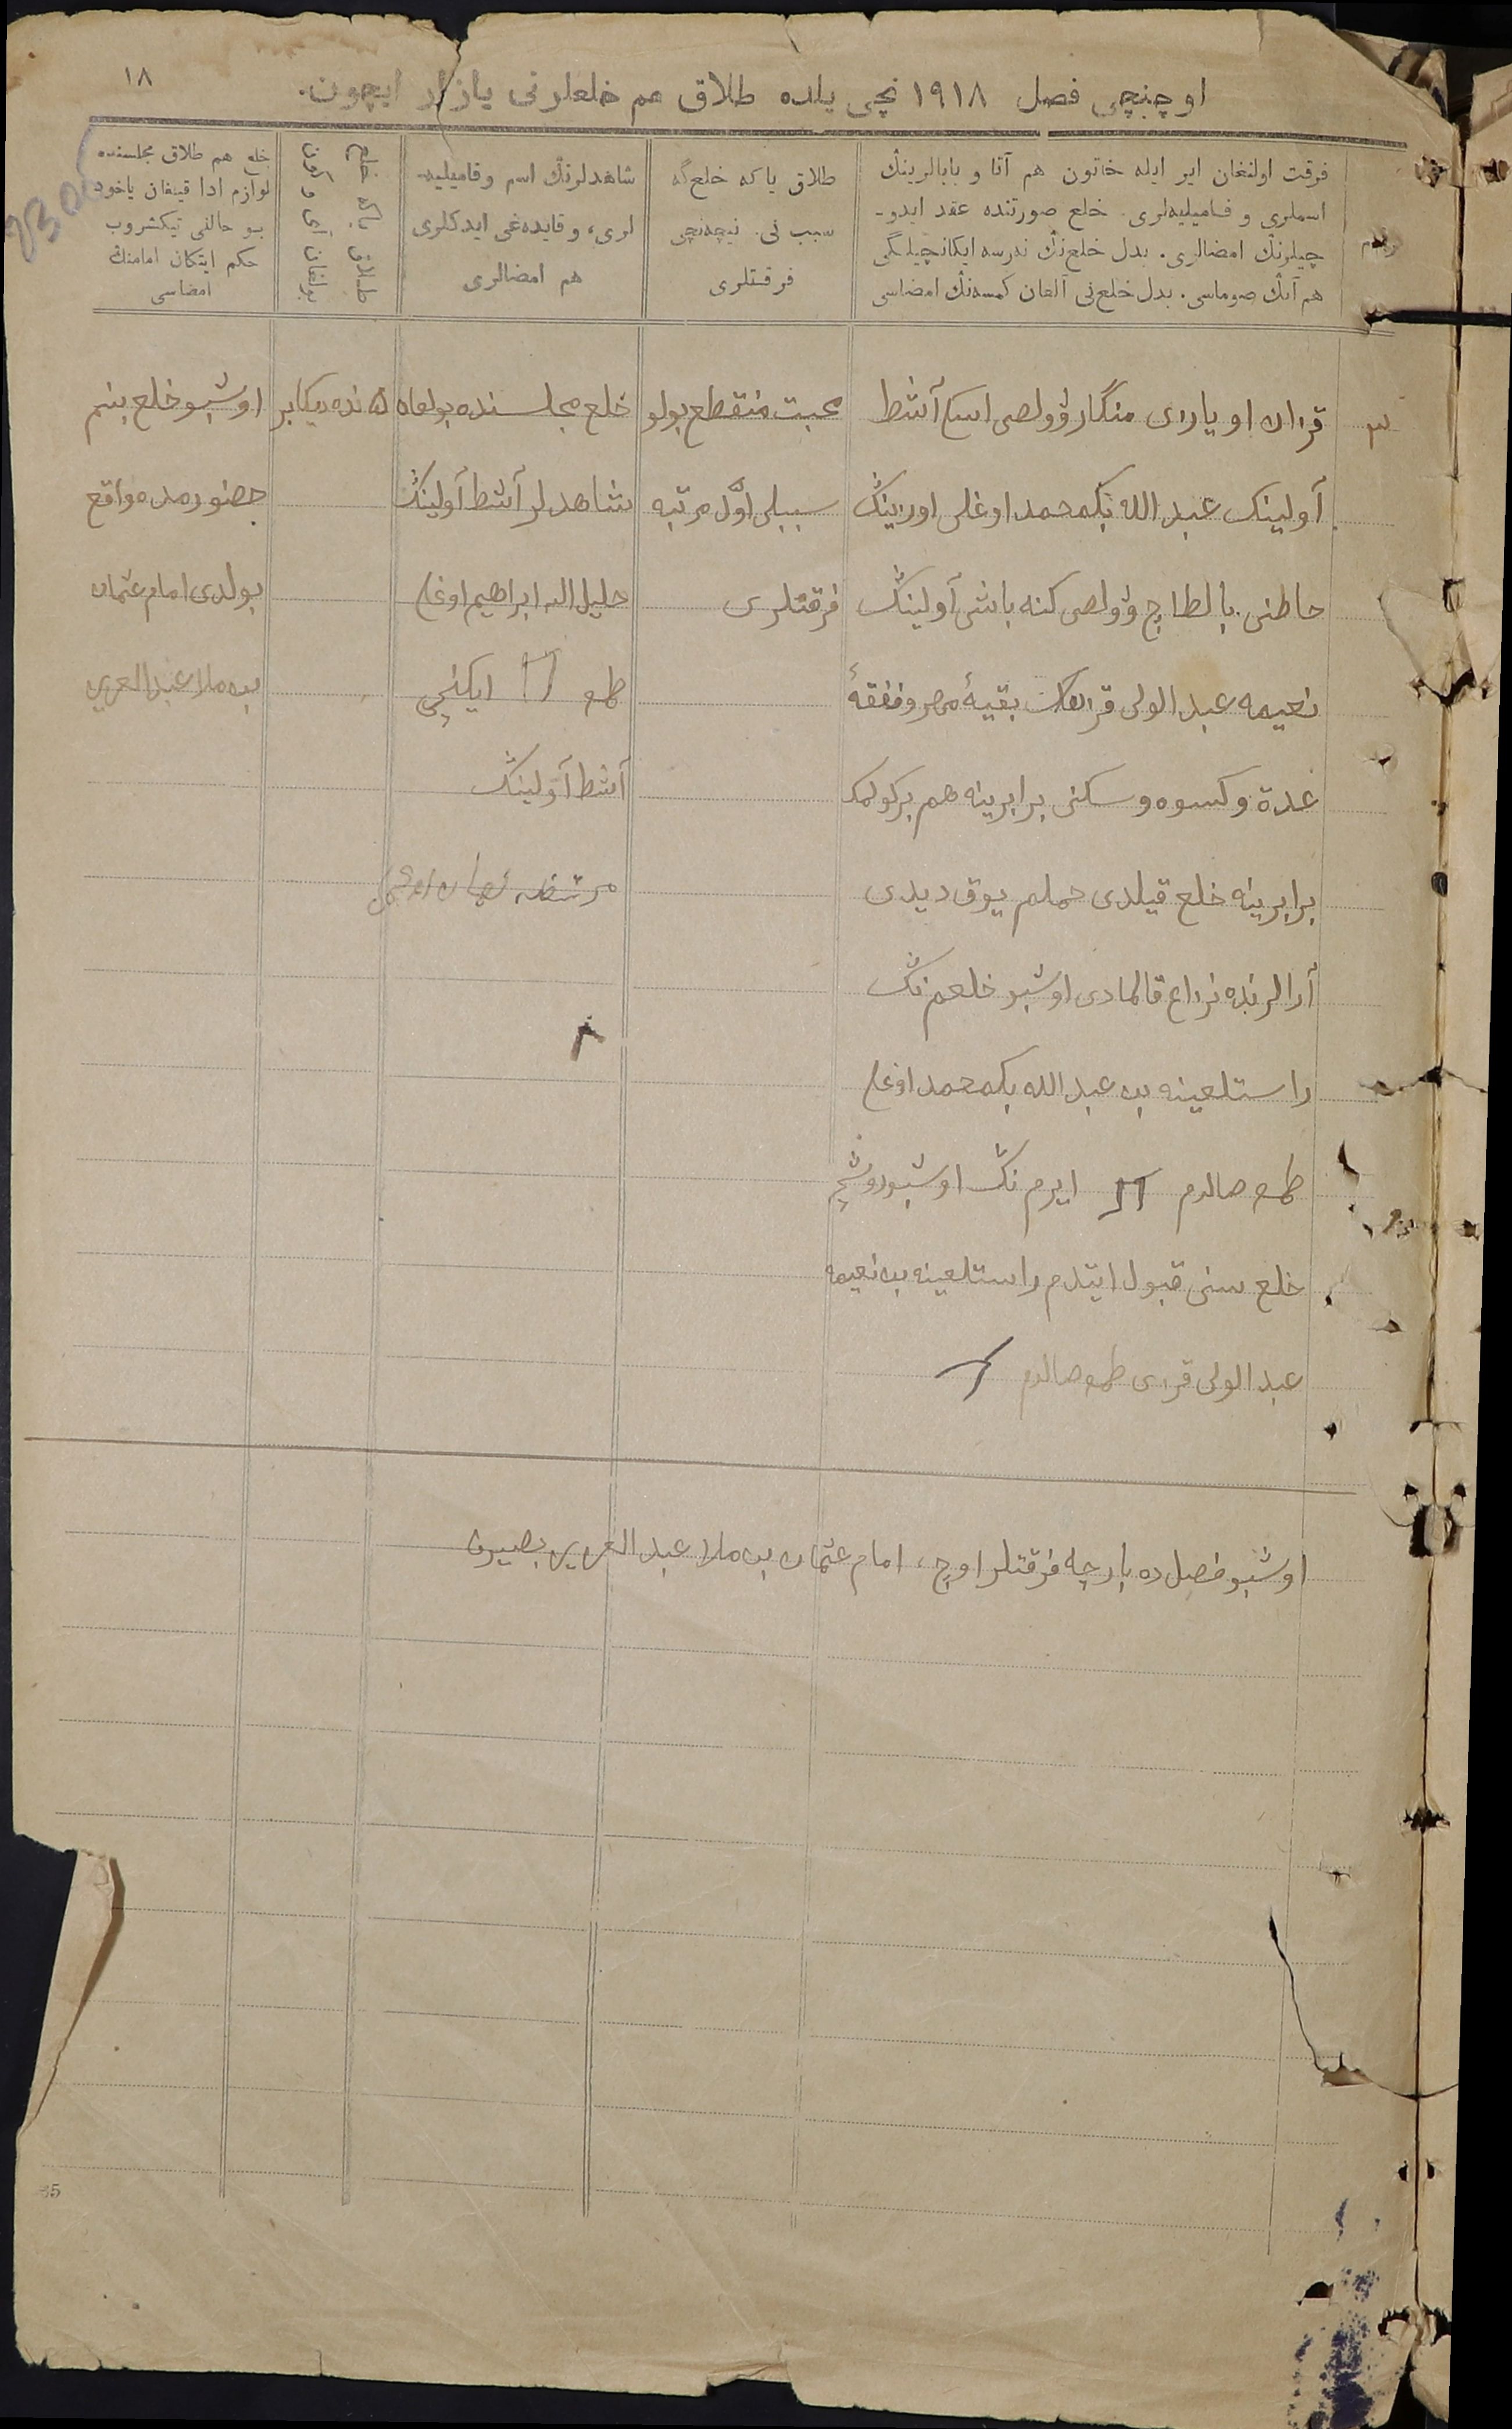 ١٨
اوچنچی فصل ١٩١٨ نچی یلده طلاق هم خلعلرنی یازار ایچون.
رقم
فرقت اولنغان ایر ایله خاتون هم آتا و بابالرینڭ
اسملری و فامیلیه‌لری. خلع صورتنده عقد ایدو-
چیلرنڭ امضالری. بدل خلع‌نڭ ندرسه ایکانچیلگی
هم آنڭ صوماسی. بدل خلع‌نی آلغان کمسه‌نڭ امضاسی
طلاق یا که خلع‌گه
سبب نی. نیچه‌نچی
فرقتلری
شاهدلرنڭ اسم و فامیلیه-
لری، و قایده‌غی ایدکلری
هم امضالری
طلاق یا که خلع
بولغان آی و کون
خلع هم طلاق مجلسنده
لوازم ادا قیلغان یاخود
بو حالنی تیکشروب
حکم ایتکان امامنڭ
امضاسی
٣
قزان اویازی منگار وولصی آشط
آولینڭ عبد الله بکمحمد اوغلی اوزینڭ
خاطنی بالطاچ وولصی کنه باشی آولینڭ
نعیمه عبد الولی بقیۀ مهر و نفقۀ
عدة و کسوه و سکنی برابرینه هم بر کولمک
برابرینه خلع قیلدی حملم یوق دیدی
آرالرنده نزاع قالمادی اوشبو خلعم‌نڭ
راستلغینه بن عبد الله بکمحمد اوغلی
طمغه صالدم ایرم‌نڭ اوشبو
خلع‌سنی قبول ایتدم راستلغینه بن نعیمه
عبد الولی قزی طمغه صالدم
محبت منقطع بولو
سببلی اوّل مرتبه
فرقتلری
خلع مجلسنده بولغان
شاهدلر آشط آولینڭ
ابراهیم اوغلی
طمغه ایکنچی
آشط آولینڭ
١٥نده دیکابر
اوشبو خلع بنم
حضورمده واقع
بولدی امام عثمان
بن ملا عبد العزیز
اوشبو فصل‌ده بارچه فرقتلر اوچ، امام عثمان بن ملا عبد العزیز
35